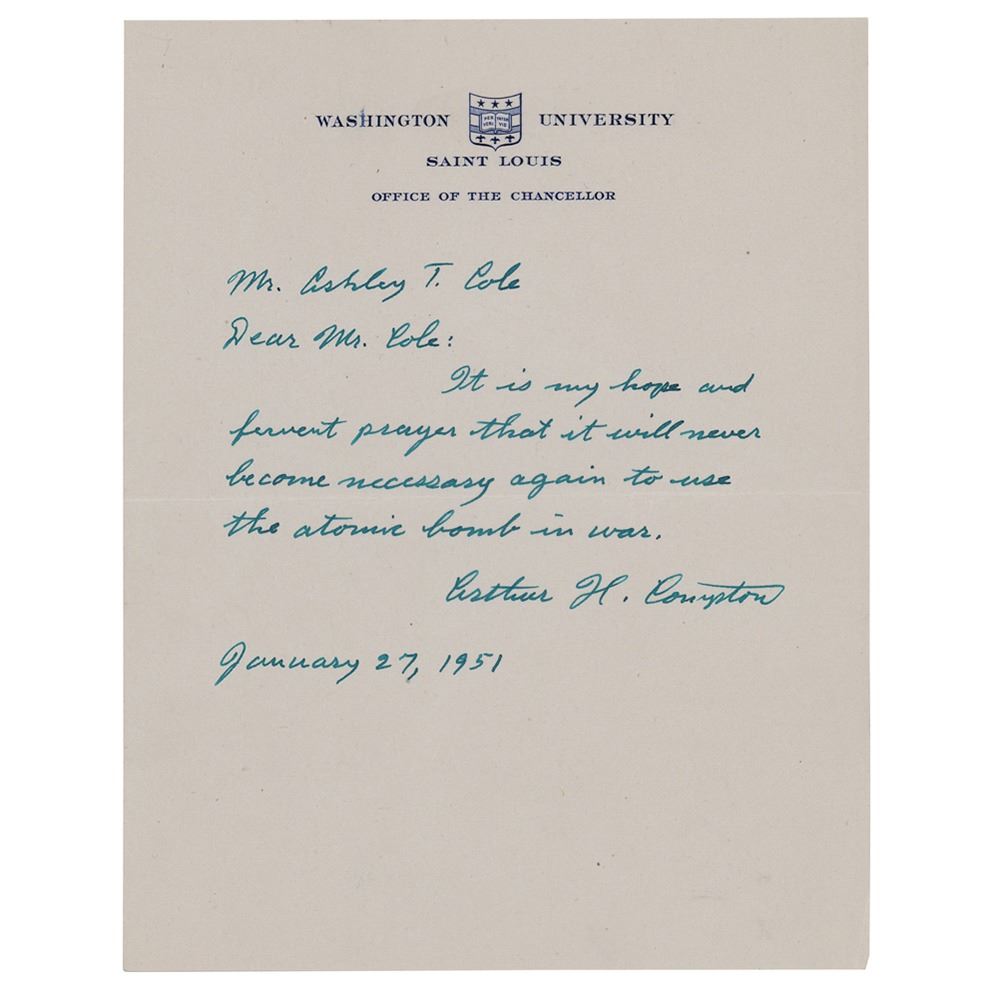 WASHINGTON UNIVERSITY
PER VERI TATEM VIS
SAINT LOUIS
OFFICE OF THE CHANCELLOR
Mr. Ashley T. Cole
Dear Mr. Cole:
It is my hope and
fervent prayer that it will never
become necessary again to use
the atomic bomb in war.
Arthur H. Compton
January 27, 1951